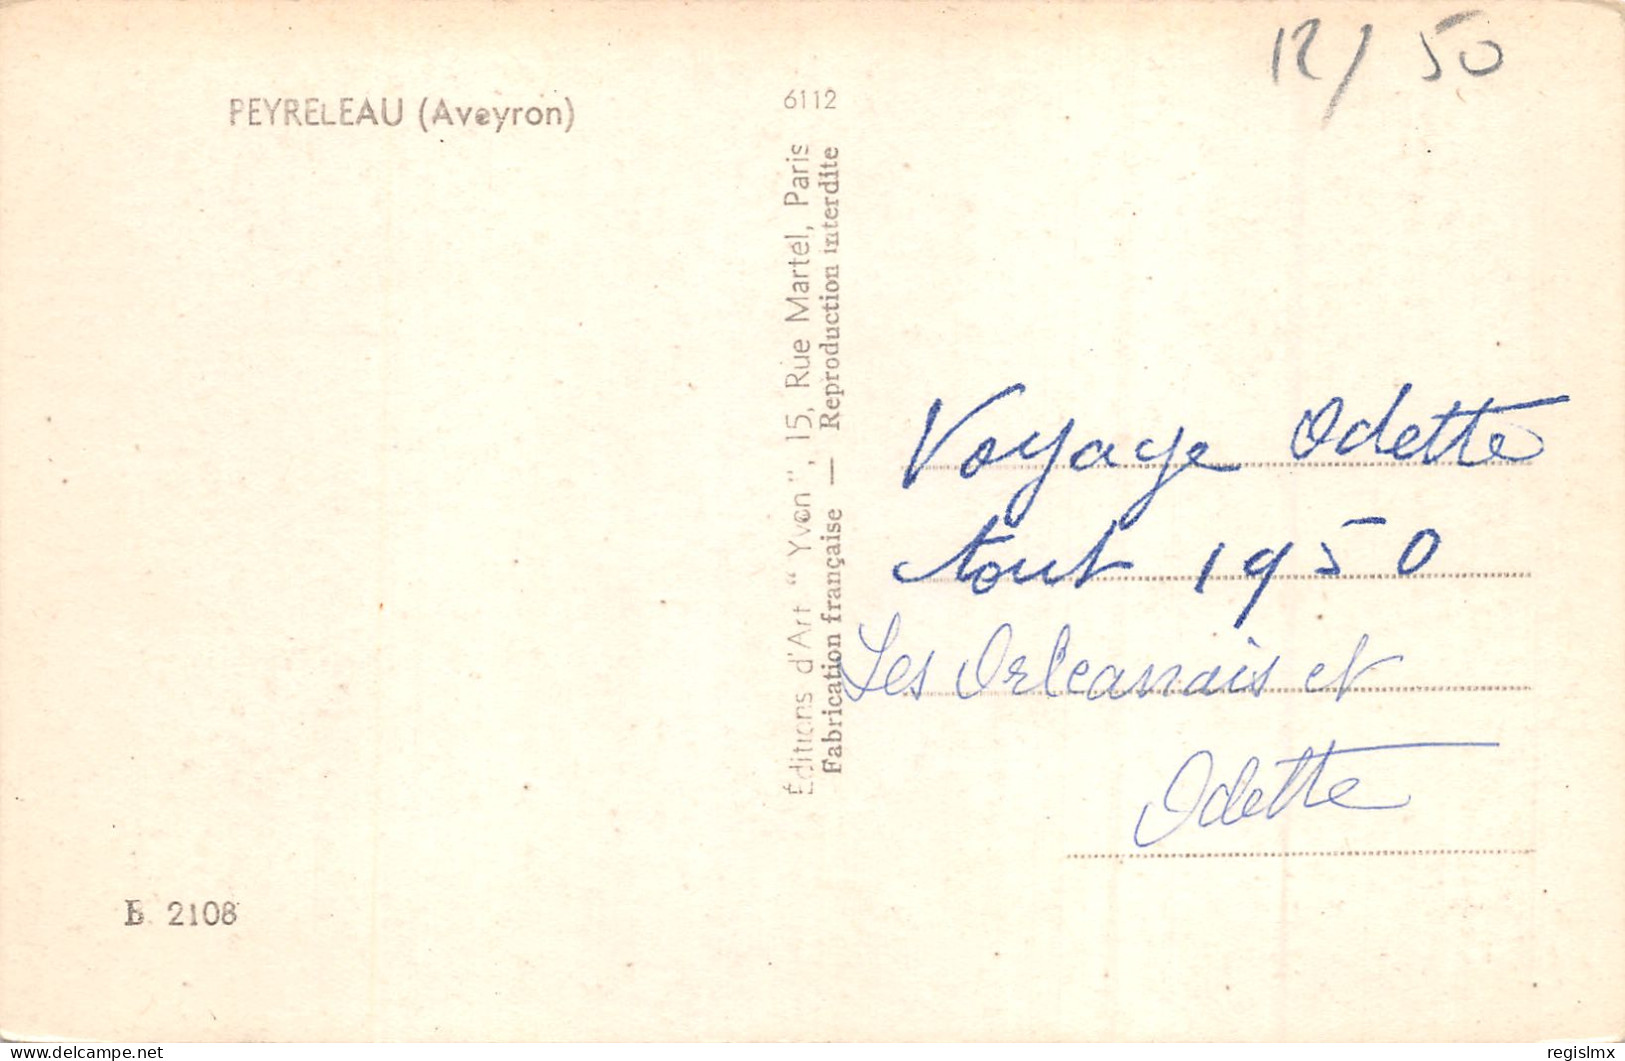 PEYRELEAU (Aveyron)
6112
12/ 50
Éditions d'Art “ Yvon ”, 15, Rue Martel, Paris
Fabrication française — Reproduction interdite
Voyage Odette
tout 1950
Les Orléanais et
Odette
B. 2108
www.delcampe.net
regislmx